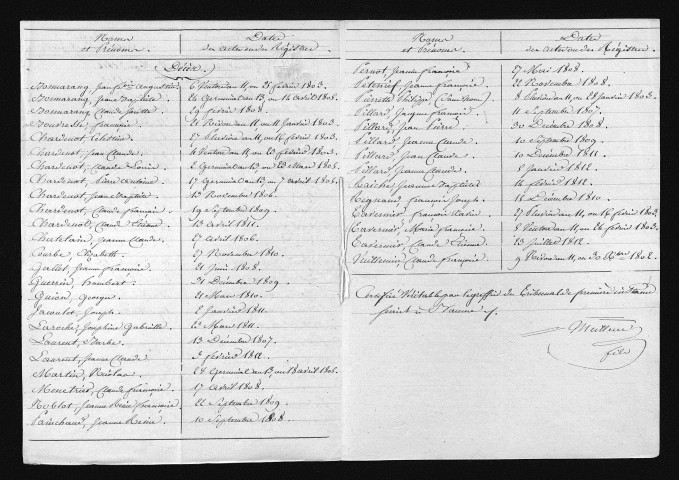 Noms et Prénoms.
Dates des actes ou des Registres
Décès.
Bomarang, jean 6 Ventose an 11, ou 25 février 1803.
Bomarang, jeanne Baptiste. 24 Germinal an 13, ou 14 avril 1805.
Bomarang, Claude février 1808.
21 Nivose an 11 ou 11 janvier 1803.
Chardenot, Célestine. 27 Pluviose an 11, ou 16 février 1803.
Chardenot, Jean Claude. 4 Ventose an 11, ou 23 février 1803.
Chardenot, Claude Louise. 2 Germinal an 13 ou 23 Mars 1805.
Chardenot, Pierre Antoine. 17 Germinal an 13, ou 7 avril 1805.
Chardenot, jeanne Baptiste. 13 Novembre 1806.
Chardenot, Claude françois. 19 Septembre 1809.
Chardenot, Claude Etienne. 13 avril 1811.
Chatelain, jeanne Claude. 27 avril 1806.
Courbe, Elizabeth. 27 Novembre 1810.
Gallet, jeanne françoise. 21 juin 1808.
Guerrin, humbert. 31 Décembre 1809.
Guion, George. 21 Mars 1810.
Jacoulot, Joseph. 2 Janvier 1811.
Laroche, Josephine Gabrielle. 22 Mars 1811.
Laurent, Barbe. 13 Décembre 1807.
Laurent, jeanne Claude. 5 février 1812.
Martin, Nicolas. 28 Germinal an 13, ou 18 avril 1805.
Menetrier, Claude françoise. 17 avril 1808.
Noblot, jeanne Reine françoise 22 Septembre 1809.
Painchaud, jeanne Reine. 10 Septembre 1808.
Noms et Prénoms.
Dates des actes ou des Registres
Pernot, jeanne françoise 27 Mai 1808.
jeanne françoise. 22 Novembre 1808.
Pierrette Philippe 8 Pluviose an 11, ou 28 janvier 1803.
Pillard, jacques françois. 11 Septembre 1807.
Pillard, jean Pierre. 30 Décembre 1808.
Pillard, jeanne Claude. 10 Septembre 1809.
Pillard, jean Claude. 10 Décembre 1811.
Pillard, jeanne Claude. 8 Janvier 1812.
jeanne Baptiste. 14 février 1812.
Regnaud, françois Joseph. 18 Décembre 1810.
Tavernier, françois Xavier. 27 Pluviose an 11, ou 16 février 1803.
Tavernier, Marie françoise. 5 Ventose an 11, ou 24 février 1803.
Tavernier, Claude Etienne. 13 juillet 1812.
Vuillemin, Claude françoise. 9 Nivose an 11, ou 30 Xbre 1802.
Certifié Véritable par le greffier du Tribunal de première instance
séant à Baume.
fils